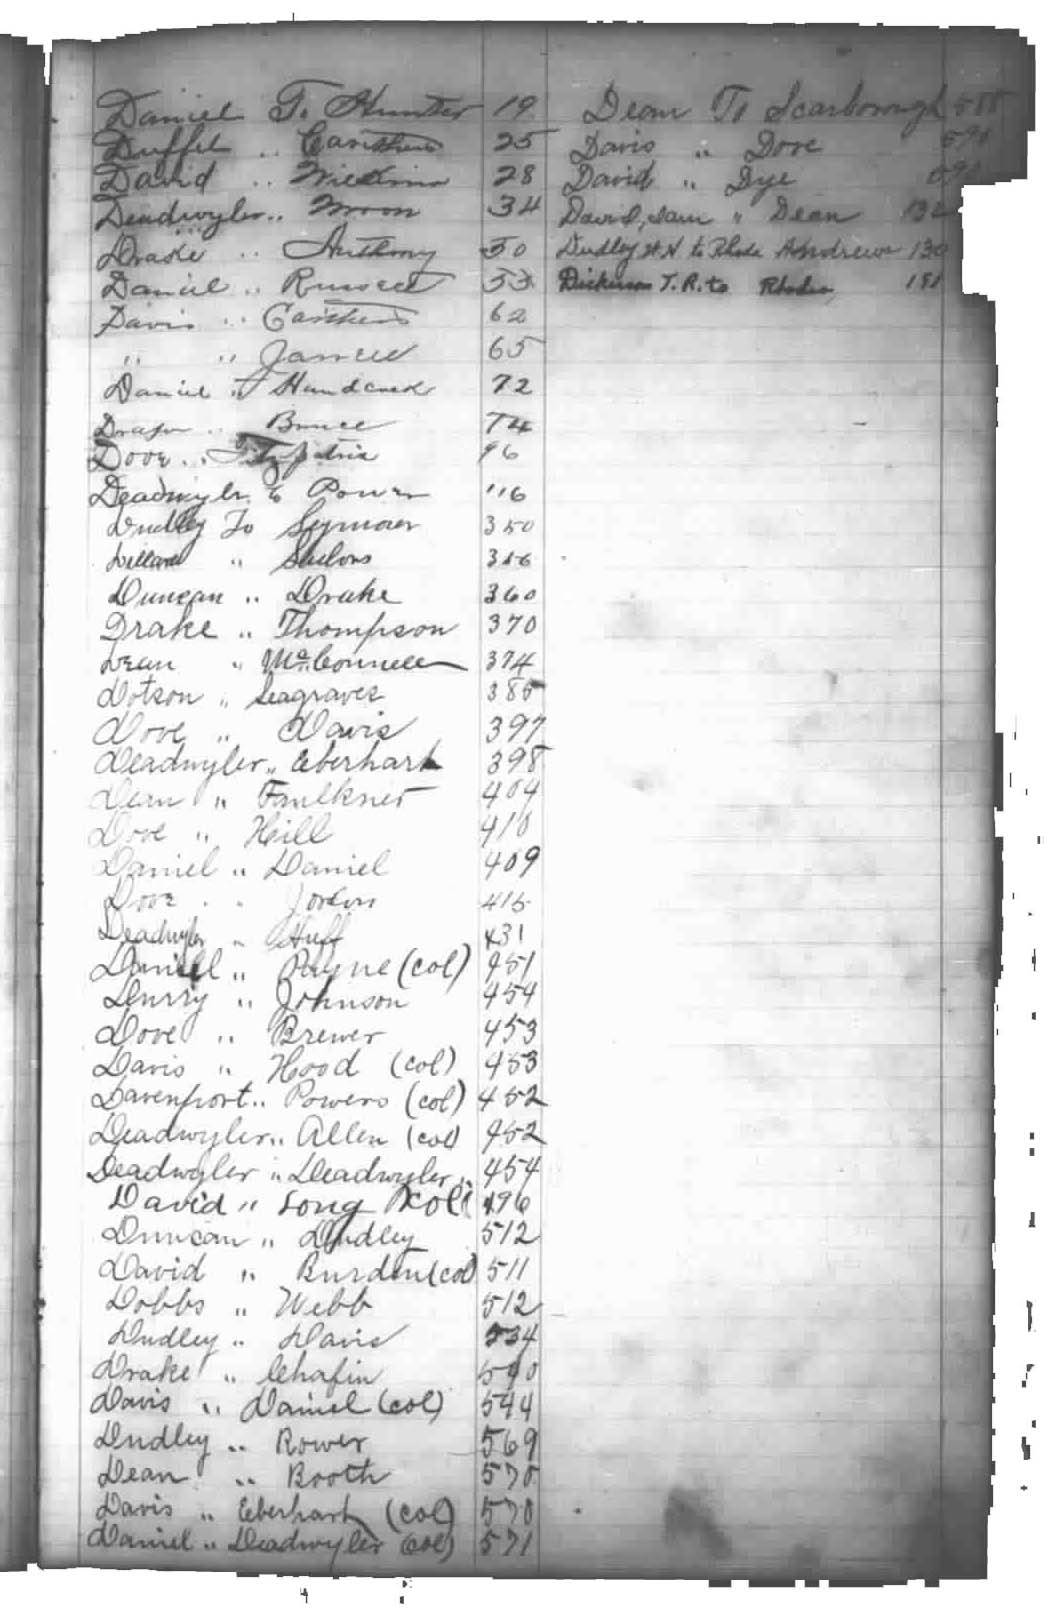 Daniel To Hunter 19
Duffel " Carithers 25
David " Williams 28
Deadwyler " Moon 34
Drake " Anthony 50
Daniel " Russell 53
Davis " Carithers 62
" " James 65
Daniel " 72
" Bruce 74
Dove " Fitzpatric 96
Deadwyler to Power 116
Dudley To Seymour 350
" 356
Duncan " Drake 360
Drake " Thompson 370
Dean " McConnell 374
Dotson " Seagraves 385
Dove " Davis 397
Deadwyler " Eberhart 398
Dean " Faulkner 404
Dove " Hill 410
Daniel " Daniel 409
Dove " 415
Deadwyler " Huff 431
Daniel " Payne (col) 451
Durry " Johnson 454
Dove " Brewer 453
Davis " Hood (col) 453
Davenport " Powers (col) 452
Deadwyler " Allen (col) 452
Deadwyler " Deadwyler " 454
David " Long (col) 496
Duncan " Dudley 512
David " Burden (col) 511
Dobbs " Webb 512
Dudley " Davis 534
Drake " Chafin 540
Davis " Daniel (col) 544
Dudley " Rower 569
Dean " Booth 570
Davis " Eberhart (col) 570
Daniel " Deadwyler (col) 571
Dean To Scarborough
Davis " Dove
David " Dye
David, Sam " Dean 132
Dudley to Andrews 130
Dickinson T. R. to Rhodes 181